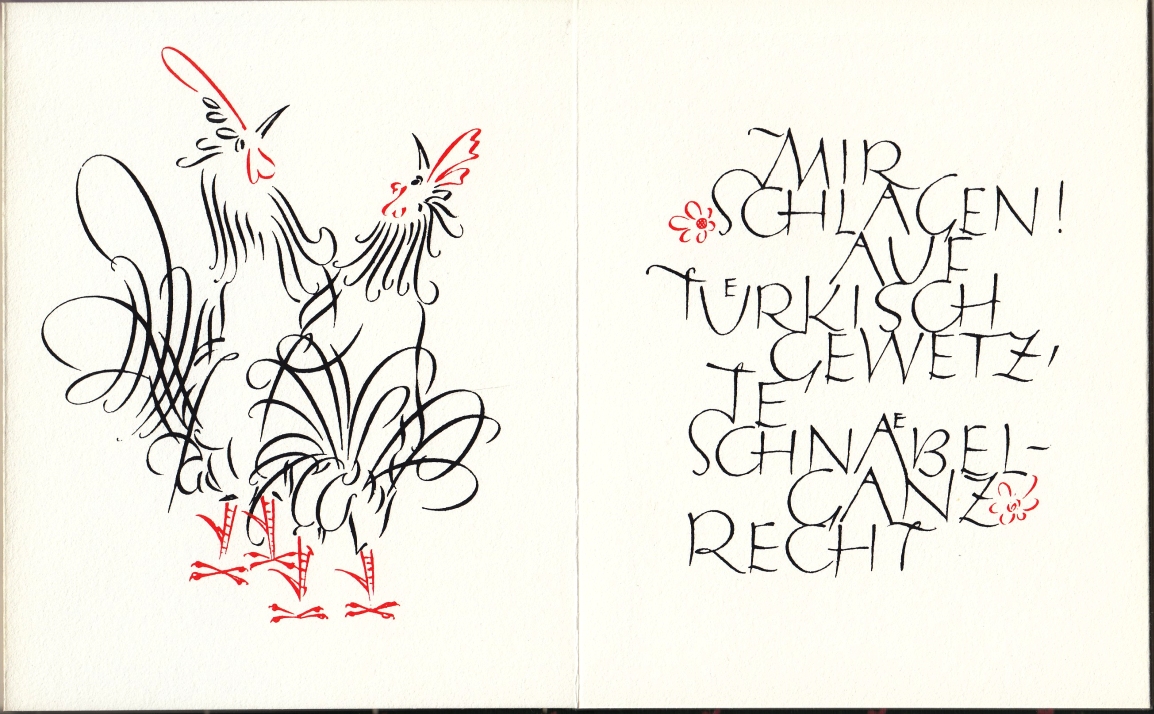 MIR
SCHLAGEN!
AUF
TUERKISCH
GEWETZ,
JE
SCHNAEBEL-
GANZ
RECHT